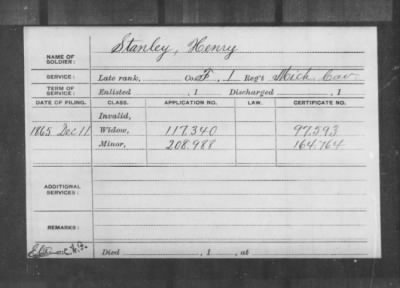 Stanley, Henry
NAME OF SOLDIER:
SERVICE: Late rank, Co. F, 1 Reg't Mich. Cav
TERM OF SERVICE: Enlisted , 1 Discharged , 1
DATE OF FILING. CLASS. APPLICATION NO. LAW. CERTIFICATE NO.
Invalid,
1865 Dec 11 Widow, 117.340 97.593
Minor, 208.988 164.764
ADDITIONAL SERVICES:
REMARKS:
Died , 1 , at